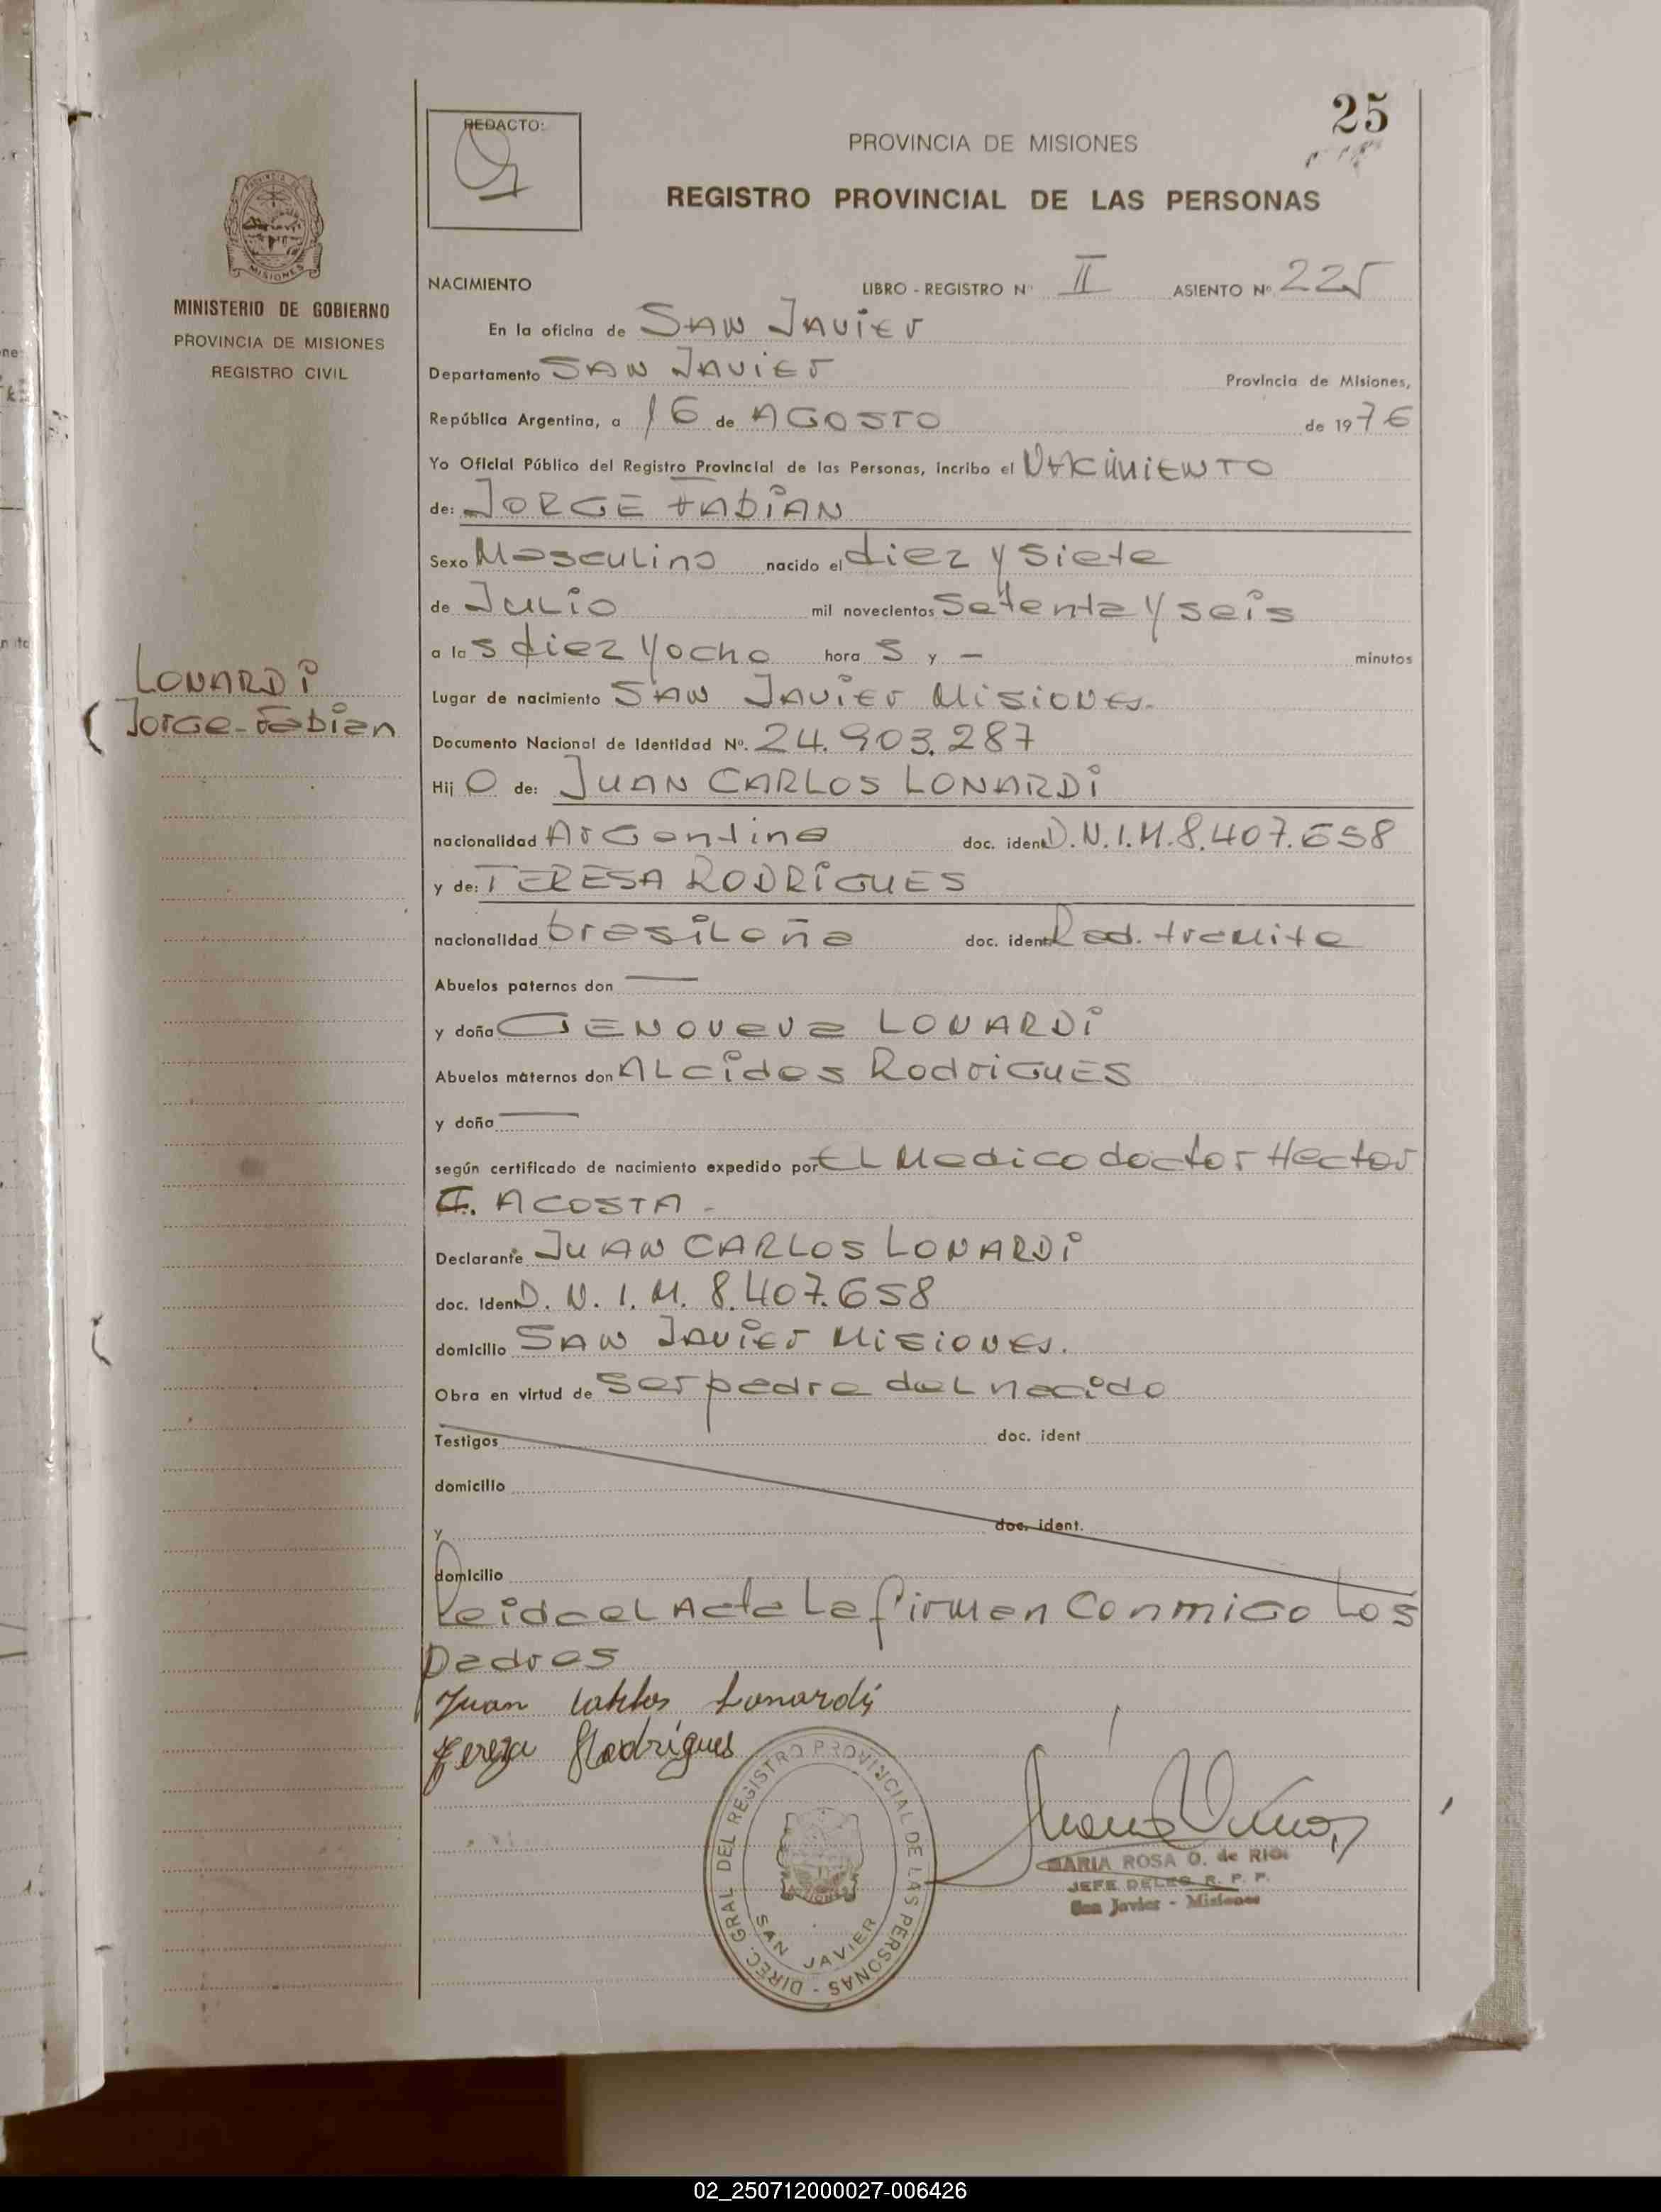 25
REDACTO:
PROVINCIA DE MISIONES
REGISTRO PROVINCIAL DE LAS PERSONAS
MISIONES
MINISTERIO DE GOBIERNO
PROVINCIA DE MISIONES
REGISTRO CIVIL
NACIMIENTO LIBRO - REGISTRO Nº II ASIENTO Nº 225
En la oficina de SAN JAVIEr
Departamento SAN JAVIEr Provincia de Misiones,
República Argentina, a 16 de AGOSTO de 1976
Yo Oficial Público del Registro Provincial de las Personas, incribo el NACIMIENTO
de: JORGE FABIAN
Sexo Masculino nacido el diez y siete
de Julio mil novecientos setenta y seis
a las diez y ocho horas y — minutos
LONARDI
Jorge-Fabian
Lugar de nacimiento SAN JAVIEr Misiones.
Documento Nacional de Identidad Nº. 24.903.287
Hijo de: JUAN CARLOS LONARDI
nacionalidad Argentina doc. ident D.N.I.M.8.407.658
y de: TERESA RODRIGUES
nacionalidad brasileña doc. ident Rad. tramite
Abuelos paternos don —
y doña GENOVEVA LONARDI
Abuelos maternos don ALcides RodriGUES
y doña —
según certificado de nacimiento expedido por El Medico doctor Hector
ACOSTA -
Declarante JUAN CARLOS LONARDI
doc. Ident D.N.I.M. 8.407.658
domicilio SAN JAVIEr Misiones.
Obra en virtud de ser padre del nacido
Testigos doc. ident
domicilio
y doc. ident.
domicilio
Leida el Acta La firman conmigo Los
padres
Juan Carlos Lonardi
Tereza Rodrigues
DIREC. GRAL DEL REGISTRO PROVINCIAL DE LAS PERSONAS -
SAN JAVIER
MARIA ROSA O. de RIOS
JEFE DELEG. R. P. P.
San Javier - Misiones
02_250712000027-006426